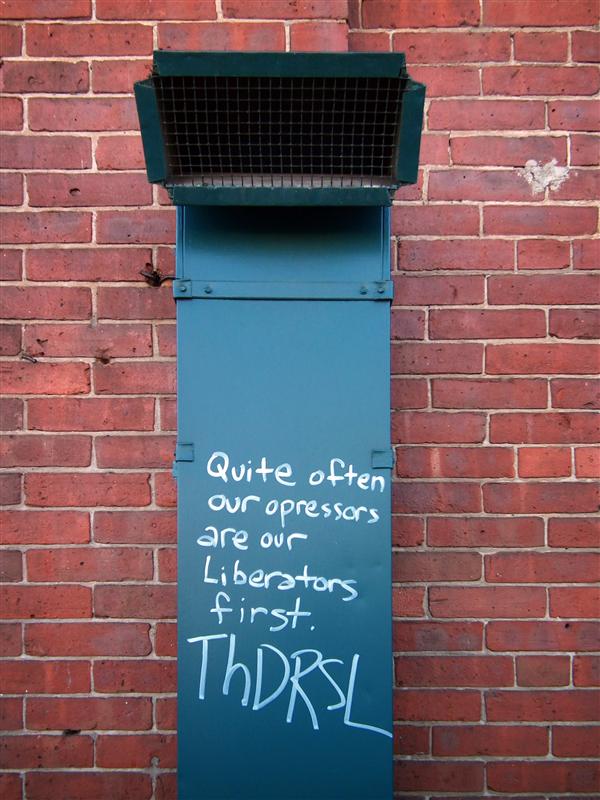 Quite often
our opressors
are our
Liberators
first.
ThDRSL